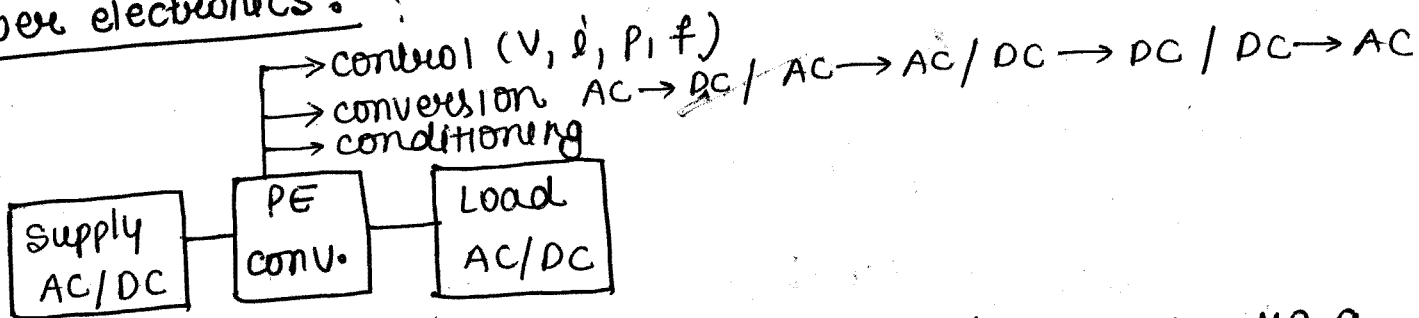 electronics :
→ control (V, i, P, f)
→ conversion AC → DC / AC → AC / DC → DC / DC → AC
→ conditioning
Supply AC/DC
PE conv.
Load AC/DC